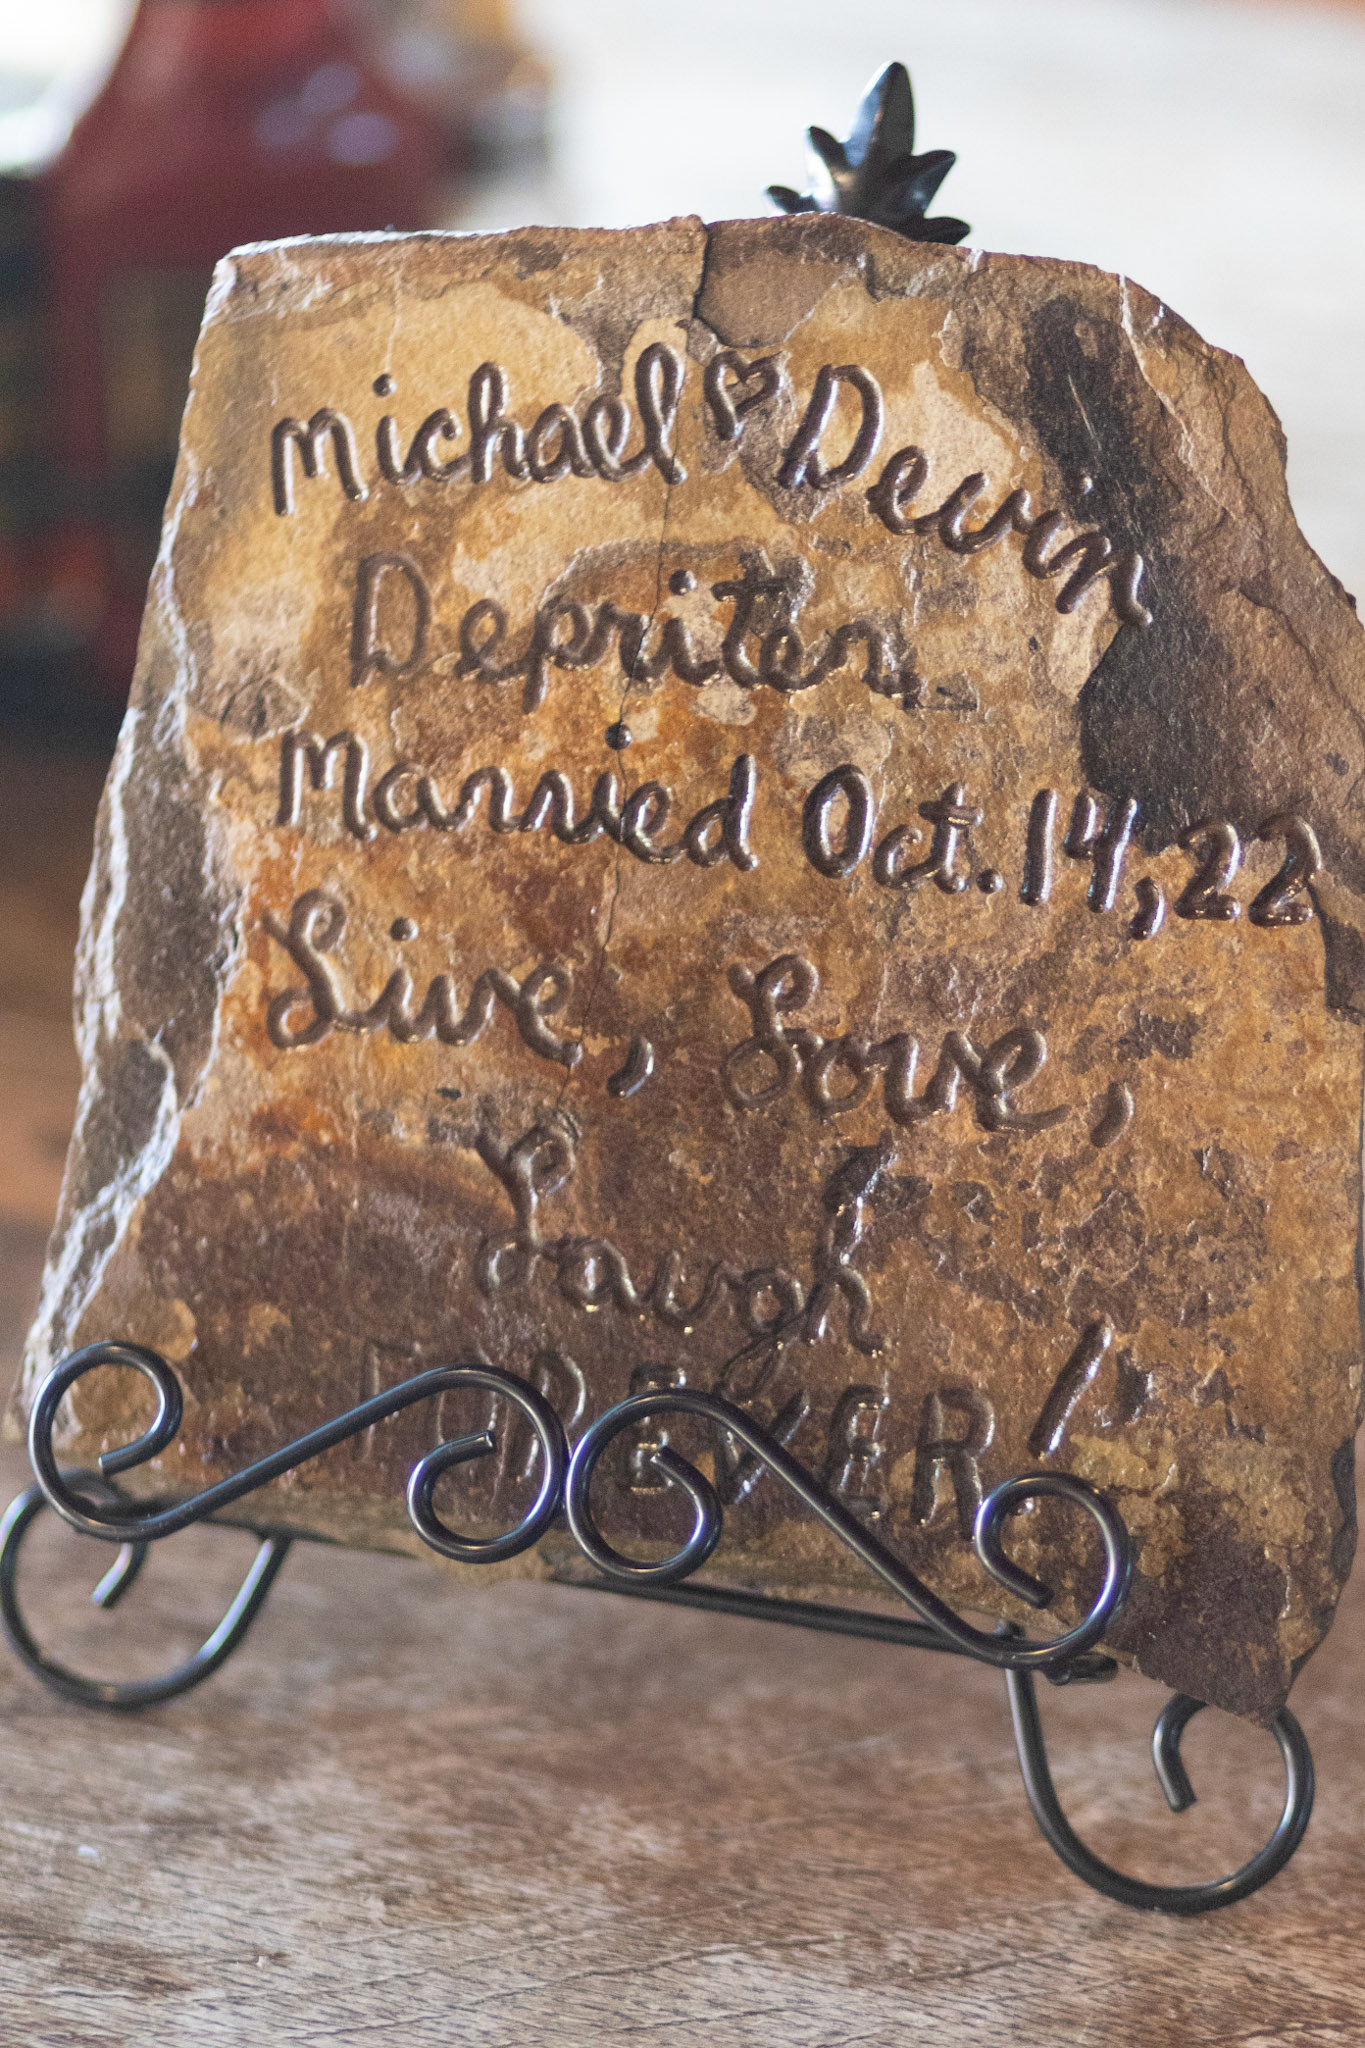 Michael ♡ Devin
Depriter
Married Oct. 14, 22
Live, Love,
Laugh
FOREVER!